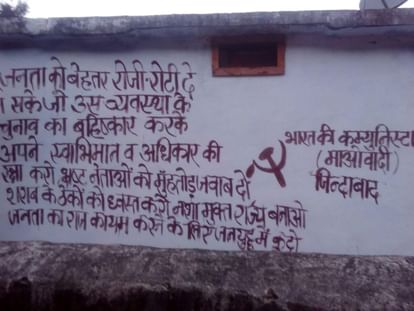 जनता को बेहतर रोजी-रोटी दे
न सके जी उस व्यवस्था के
चुनाव का बहिष्कार करके
अपने स्वाभिमान व अधिकार की
रक्षा करो भ्रष्ट नेताओं को मुँहतोड़ जवाब दो
शराब के ठेकों को ध्वस्त करो नशा मुक्त राज्य बनाओ
जनता का राज कायम करने के लिए जनयुद्ध में कूदो
भारत की कम्युनिस्ट
(माओवादी)
जिन्दाबाद